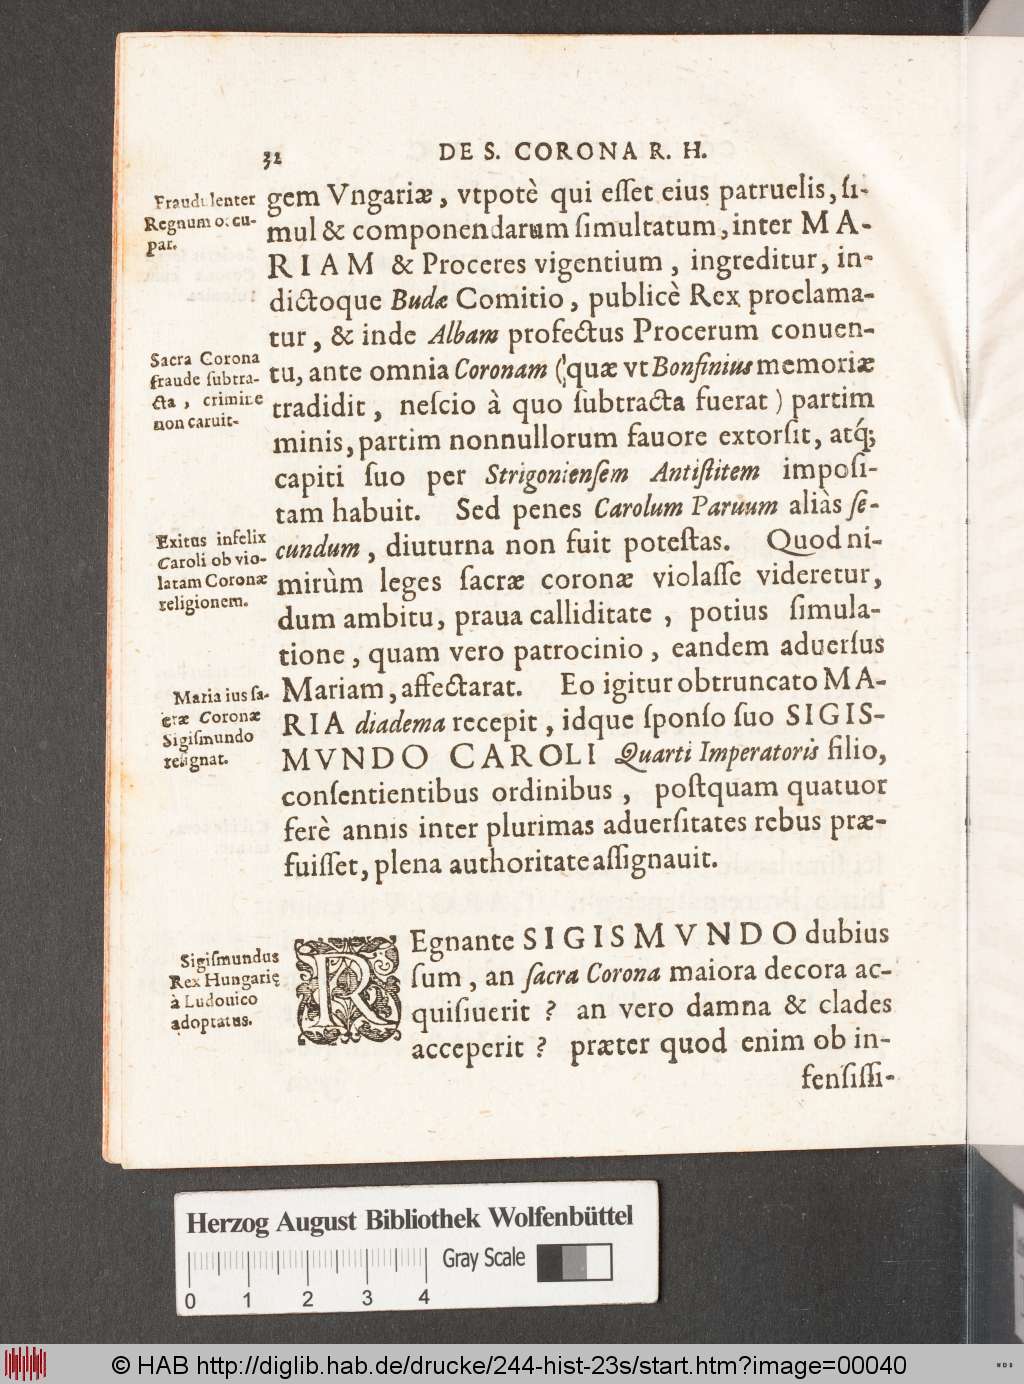 32 DE S. CORONA R. H.
Fraudulenter
Regnum occu-
par.
gem Vngariæ, vtpotè qui eſſet eius patruelis, ſi-
mul & componendarum ſimultatum, inter MA-
RIAM & Proceres vigentium, ingreditur, in-
dictoque Budæ Comitio, publicè Rex proclama-
tur, & inde Albam profectus Procerum conuen-
Sacra Corona
fraude ſubtra-
cta, crimine
non caruit.
tu, ante omnia Coronam (quæ vt Bonfinius memoriæ
tradidit, neſcio à quo ſubtracta fuerat) partim
minis, partim nonnullorum fauore extorſit, atq́;
capiti ſuo per Strigonienſem Antiſtitem impoſi-
tam habuit. Sed penes Carolum Paruum aliàs ſe-
Exitus infelix
Caroli ob vio-
latam Coronæ
religionem.
cundum, diuturna non fuit poteſtas. Quod ni-
mirùm leges ſacræ coronæ violaſſe videretur,
dum ambitu, praua calliditate, potius ſimula-
tione, quam vero patrocinio, eandem aduerſus
Maria ius ſa-
cræ Coronæ
Sigiſmundo
reſignat.
Mariam, affectarat. Eo igitur obtruncato MA-
RIA diadema recepit, idque ſponſo ſuo SIGIS-
MVNDO CAROLI Quarti Imperatoris filio,
conſentientibus ordinibus, poſtquam quatuor
ferè annis inter plurimas aduerſitates rebus præ-
fuiſſet, plena authoritate aſſignauit.
Sigiſmundus
Rex Hungarię
à Ludouico
adoptatus.
REgnante SIGISMVNDO dubius
ſum, an ſacra Corona maiora decora ac-
quiſiuerit? an vero damna & clades
acceperit? præter quod enim ob in-
fenſiſſi-
Herzog August Bibliothek Wolfenbüttel
Gray Scale
0 1 2 3 4
© HAB http://diglib.hab.de/drucke/244-hist-23s/start.htm?image=00040